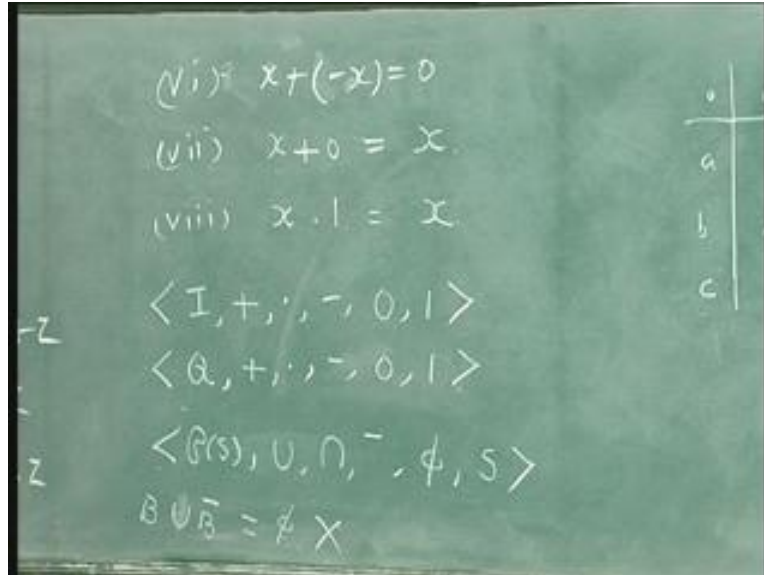 (vi) x+(-x)=0
(vii) x+0 = x.
(viii) x . 1 = x
<I, +, ·, -, 0, 1>
<Q, +, ·, -, 0, 1>
<P(S), ∪, ∩, ‾, ϕ, S>
B ∪ B̅ = ϕ X
-Z
. Z
o
a
b
c